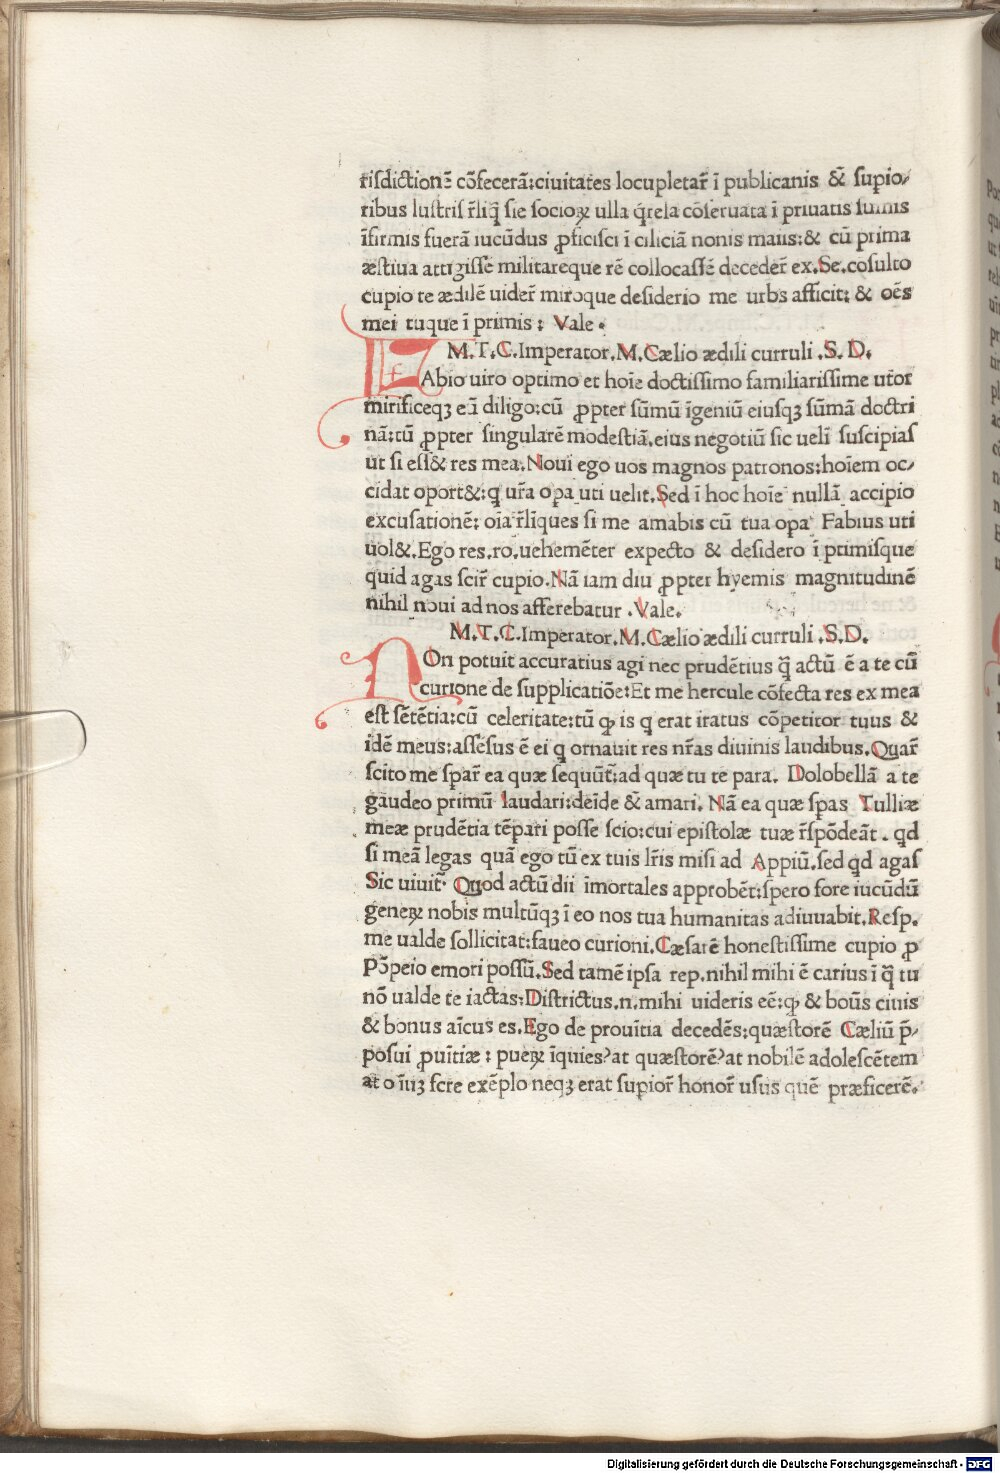 risdictionē cōfecerā:ciuitates locupletar̄ ī publicanis & supio⸗
ribus lustris r̄liq̄ sie socioꝝ ulla q́rela cōseruata ī priuatis sumis
īfirmis fuerā iucūdus ꝓficisci ī ciliciā nonis maiis:& cū prima
æstiua attigissē militareque rē collocassē deceder̄ ex.Se.cōsulto
cupio te ædilē uider̄ miroque desiderio me urbs afficit: & oēs
mei tuque ī primis: Vale.
M.T.C.Imperator.M.Cælio ædili curruli.S.D.
F Abio uiro optimo et hoīe doctissimo familiarissime ut̄or
mirificeqꝫ eū diligo:cū ꝓpter sūmū īgeniū eiusqꝫ sūmā doctri
nā:tū ꝓpter singularē modestiā.eius negotiū sic uelī suscipias
ut si ess& res mea.Noui ego uos magnos patronos:hoīem oc⸗
cidat oport&:q ur̄a opa uti uelit.Sed ī hoc hoīe nullā accipio
excusationē: oīa r̄līques si me amabis cū tua opa Fabius uti
uol&.Ego res.ro.uehemēter expecto & desidero ī primisque
quid agas scir̄ cupio.Nā iam diu ꝓpter hyemis magnitudinē
nihil noui ad nos afferebatur.Vale.
M.T.C.Imperator.M.Cælio ædili curruli.S.D.
N On potuit accuratius agi nec prudētius q̄ actū ē a te cū
curione de supplicatiōe:Et me hercule cōfecta res ex mea
est sētētia:cū celeritate:tū ꝙ is q erat iratus cōpetitor tuus &
idē meus:assēsus ē ei q ornauit res nr̄as diuinis laudibus.Quar̄
scito me spar̄ ea quæ sequūt:ad quæ tu te para. Dolobellā a te
gaudeo primū laudari:deīde & amari. Nā ea quæ spas Tulliæ
meæ prudētia tēpari posse scio:cui epistolæ tuæ r̄spōdeāt. qd
si meā legas quā ego tū ex tuis lr̄is misi ad Appiū.sed qd agas
Sic uiuit̄. Quod actū dii īmortales approbēt:spero fore iucūdū
geneꝝ nobis multūqꝫ ī eo nos tua humanitas adiuuabit.Resp.
me ualde sollicitat:faueo curioni.Cæsarē honestissime cupio ꝓ
Pōpeio emori possū.Sed tamē ipsa rep.nihil mihi ē carius ī q̄ tu
nō ualde te iactas:Districtus.n.mihi uideris eē:ꝙ & boūs ciuis
& bonus aīcus es.Ego de prouītia decedēs:quæstorē Cæliū p̄⸗
posui ꝓuītiæ: pueꝝ īquies?at quæstorē?at nobilē adolescētem
at oīuꝫ fere exēplo neqꝫ erat supior̄ honor̄ usus quē præficerē.
Digitalisierung gefördert durch die Deutsche Forschungsgemeinschaft - DFG